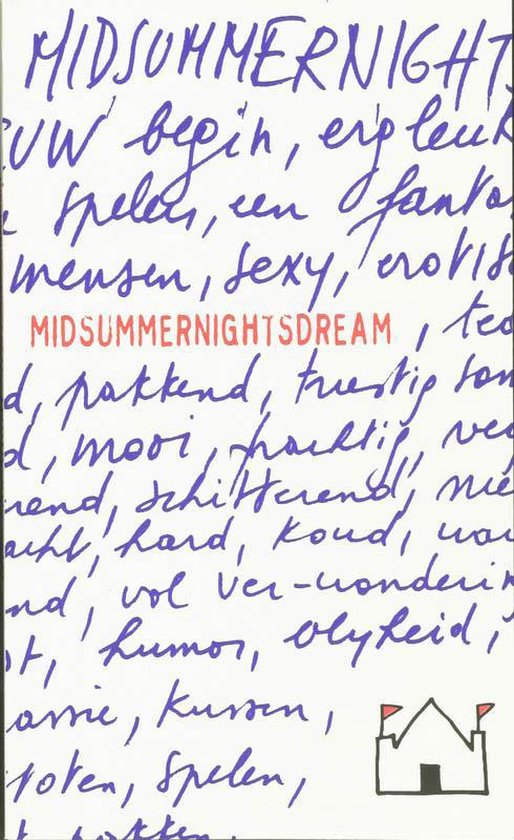 MIDSUMMERNIGHT
EUW begin, erg leuk
spelen, een fanta
mensen, sexy, erotis
MIDSUMMERNIGHTSDREAM, ted
d, pakkend, treurig som
d, mooi, prachtig, ver
rend, schitterend, nie
acht, hard, koud, war
nd, vol ver-wonderin
t, humor, vlyheid,
assie, kussen,
toten, spelen,
t, pakken.